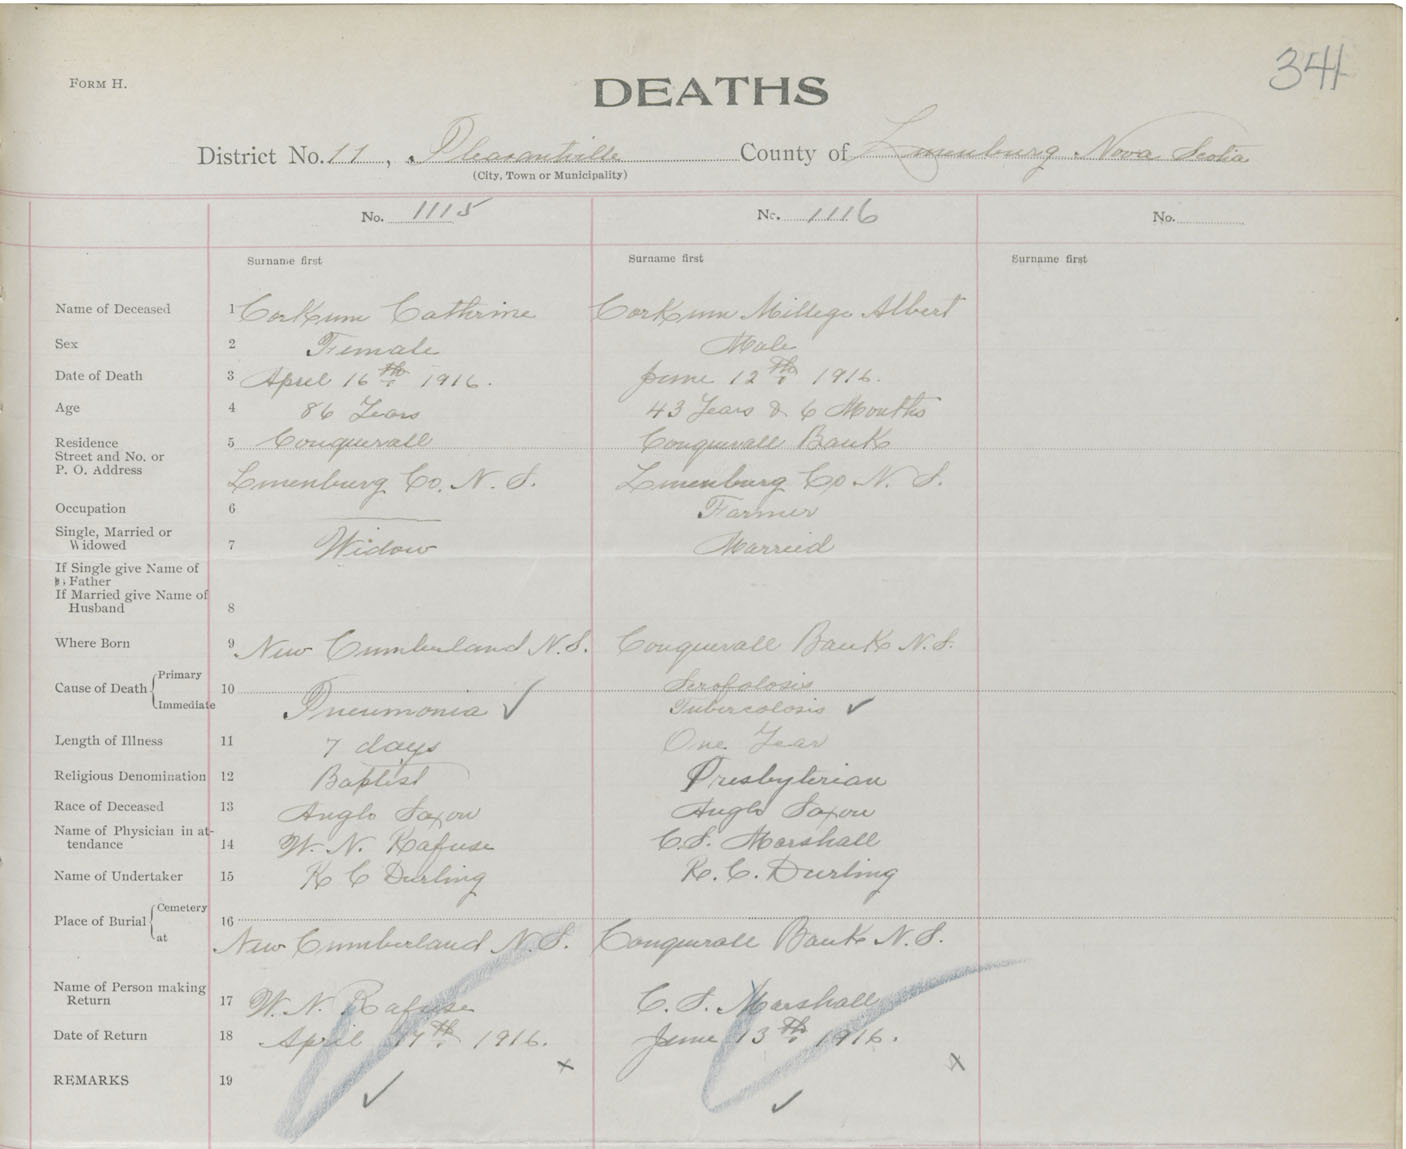 341
FORM H.
DEATHS
District No. 11, Pleasantville County of Lunenburg Nova Scotia
(City, Town or Municipality)
No. 1115 No. 1116 No.
Surname first Surname first Surname first
Name of Deceased 1 Corkum Cathrine Corkum Millege Albert
Sex 2 Female Male
Date of Death 3 April 16th 1916. June 12th 1916.
Age 4 86 Years 43 Years & 6 Months
Residence 5 Conquerall Conquerall Bank
Street and No. or
P. O. Address Lunenburg Co. N. S. Lunenburg Co N. S.
Occupation 6 Farmer
Single, Married or
Widowed 7 Widow Married
If Single give Name of
Father
If Married give Name of
Husband 8
Where Born 9 New Cumberland N.S. Conquerall Bank N.S.
Primary Scrofolosis
Cause of Death 10
Immediate Pneumonia ✓ Tubercolosis ✓
Length of Illness 11 7 days One Year
Religious Denomination 12 Baptist Presbyterian
Race of Deceased 13 Anglo Saxon Anglo Saxon
Name of Physician in at-
tendance 14 W. N. Rafuse C. S. Marshall
Name of Undertaker 15 R C Durling R. C. Durling
Cemetery
Place of Burial 16
at New Cumberland N. S. Conquerall Bank N. S.
Name of Person making
Return 17 W. N. Rafuse C. S. Marshall
Date of Return 18 April 17th 1916. June 13th 1916.
x x
REMARKS 19 ✓ ✓